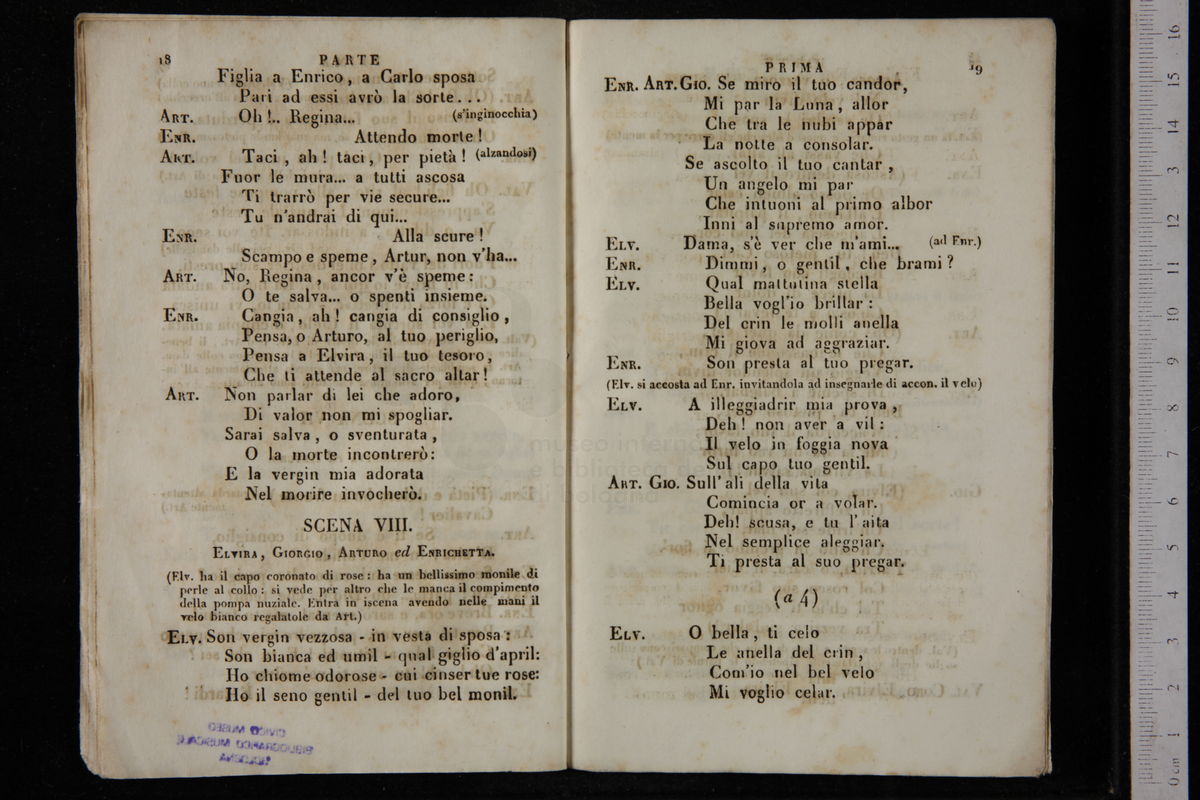 18 PARTE
Figlia a Enrico, a Carlo sposa
Pari ad essi avrò la sorte...
ART. Oh!.. Regina... (s'inginocchia)
ENR. Attendo morte!
ART. Taci, ah! taci, per pietà! (alzandosi)
Fuor le mura... a tutti ascosa
Ti trarrò per vie secure...
Tu n'andrai di qui...
ENR. Alla scure!
Scampo e speme, Artur, non v'ha...
ART. No, Regina, ancor v'è speme:
O te salva... o spenti insieme.
ENR. Cangia, ah! cangia di consiglio,
Pensa, o Arturo, al tuo periglio,
Pensa a Elvira, il tuo tesoro,
Che ti attende al sacro altar!
ART. Non parlar di lei che adoro,
Di valor non mi spogliar.
Sarai salva, o sventurata,
O la morte incontrerò:
E la vergin mia adorata
Nel morire invocherò.
SCENA VIII.
ELVIRA, GIORGIO, ARTURO ed ENRICHETTA.
(Elv. ha il capo coronato di rose: ha un bellissimo monile di
perle al collo: si vede per altro che le manca il compimento
della pompa nuziale. Entra in iscena avendo nelle mani il
velo bianco regalatole da Art.)
ELV. Son vergin vezzosa - in vesta di sposa:
Son bianca ed umil - qual giglio d'april:
Ho chiome odorose - cui cinser tue rose:
Ho il seno gentil - del tuo bel monil.
CIVICO MUSEO
BIBLIOGRAFICO MUSICALE
BOLOGNA
PRIMA 19
ENR. ART. GIO. Se miro il tuo candor,
Mi par la Luna, allor
Che tra le nubi appar
La notte a consolar.
Se ascolto il tuo cantar,
Un angelo mi par
Che intuoni al primo albor
Inni al supremo amor.
ELV. Dama, s'è ver che m'ami... (ad Enr.)
ENR. Dimmi, o gentil, che brami?
ELV. Qual mattutina stella
Bella vogl'io brillar:
Del crin le molli anella
Mi giova ad aggraziar.
ENR. Son presta al tuo pregar.
(Elv. si accosta ad Enr. invitandola ad insegnarle di accon. il velo)
ELV. A illeggiadrir mia prova,
Deh! non aver a vil:
Il velo in foggia nova
Sul capo tuo gentil.
ART. GIO. Sull'ali della vita
Comincia or a volar.
Deh! scusa, e tu l'aita
Nel semplice aleggiar.
Ti presta al suo pregar.
(a 4)
ELV. O bella, ti celo
Le anella del crin,
Com'io nel bel velo
Mi voglio celar.